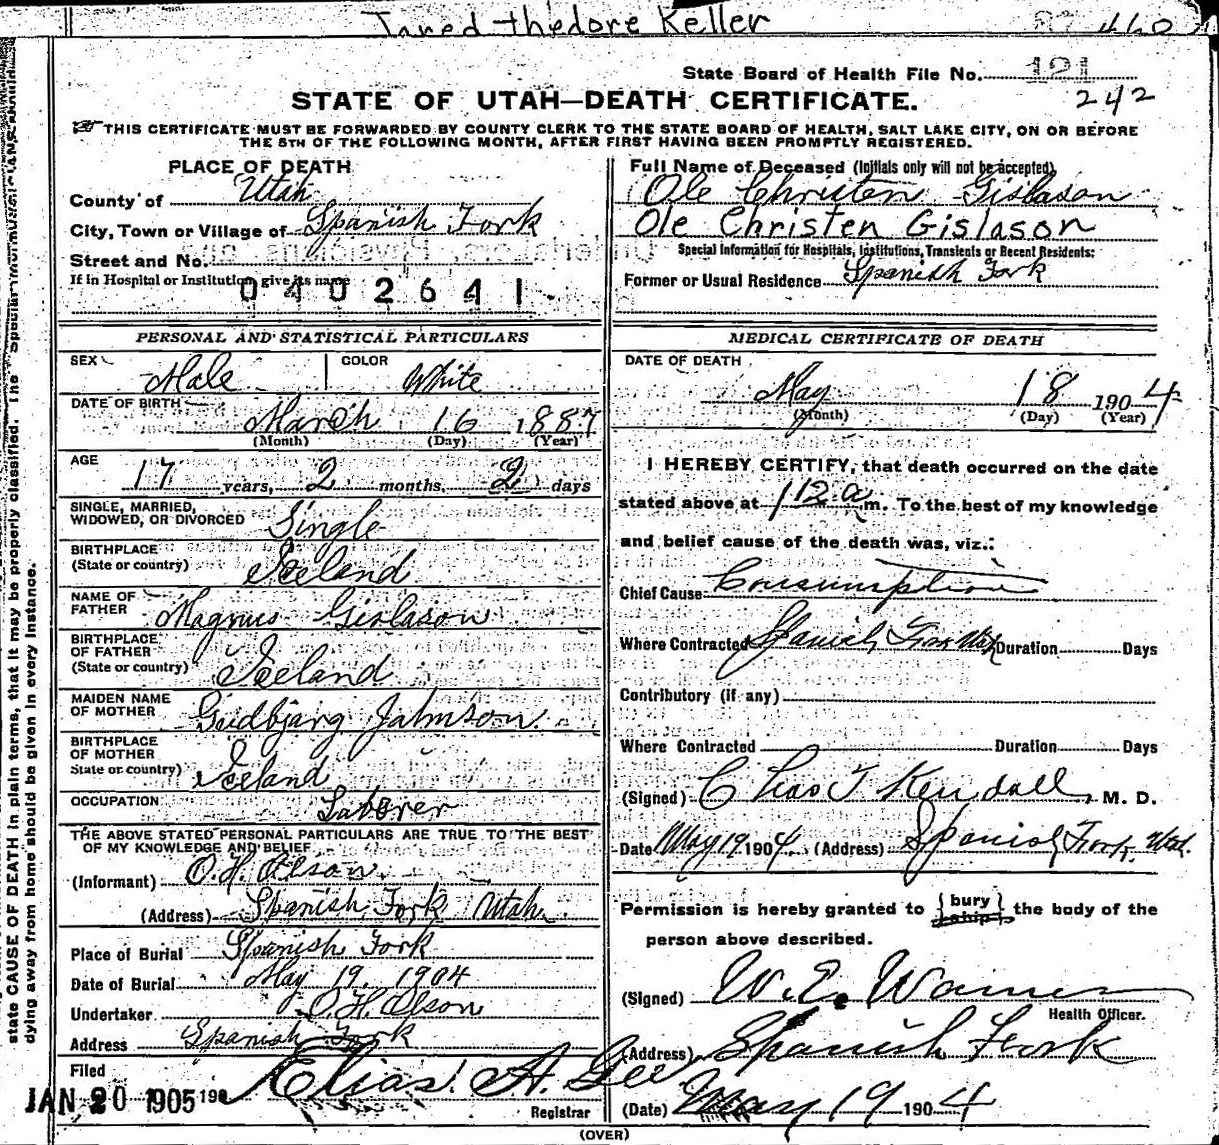 Jared thedore Keller
460
State Board of Health File No. 121
242
STATE OF UTAH—DEATH CERTIFICATE.
THIS CERTIFICATE MUST BE FORWARDED BY COUNTY CLERK TO THE STATE BOARD OF HEALTH, SALT LAKE CITY, ON OR BEFORE
THE 5TH OF THE FOLLOWING MONTH, AFTER FIRST HAVING BEEN PROMPTLY REGISTERED.
PLACE OF DEATH
County of Utah
City, Town or Village of Spanish Fork
Street and No.
If in Hospital or Institution, give its name
0402641
Full Name of Deceased (Initials only will not be accepted)
Ole Christen Gislason
Ole Christen Gislason
Special Information for Hospitals, Institutions, Transients or Recent Residents:
Former or Usual Residence Spanish Fork
PERSONAL AND STATISTICAL PARTICULARS
SEX Male COLOR White
DATE OF BIRTH March 16 1887
(Month) (Day) (Year)
AGE
17 years, 2 months, 2 days
SINGLE, MARRIED,
WIDOWED, OR DIVORCED Single
BIRTHPLACE
(State or country) Iceland
NAME OF
FATHER Magnus Gislason
BIRTHPLACE
OF FATHER
(State or country) Iceland
MAIDEN NAME
OF MOTHER Gudbjarg Jahnson
BIRTHPLACE
OF MOTHER
State or country) Iceland
OCCUPATION Laborer
THE ABOVE STATED PERSONAL PARTICULARS ARE TRUE TO THE BEST
OF MY KNOWLEDGE AND BELIEF
(Informant) O.H. Olson
(Address) Spanish Fork Utah
Place of Burial Spanish Fork
Date of Burial May 19, 1904
Undertaker O.H. Olson
Address Spanish Fork
Filed
JAN 20 1905 190 Elias A. Gee
Registrar
MEDICAL CERTIFICATE OF DEATH
DATE OF DEATH
May 18 1904
(Month) (Day) (Year)
I HEREBY CERTIFY, that death occurred on the date
stated above at 112 a m. To the best of my knowledge
and belief cause of the death was, viz.:
Chief Cause Consumption
Where Contracted Spanish Fork Utah Duration Days
Contributory (if any)
Where Contracted Duration Days
(Signed) Chas J Kendall, M. D.
Date May 19 1904. (Address) Spanish Fork, Utah.
Permission is hereby granted to { bury / ship } the body of the
person above described.
(Signed) W. E. Warner
Health Officer.
(Address) Spanish Fork
(Date) May 19 1904
(OVER)
state CAUSE OF DEATH in plain terms, that it may be properly classified. The
dying away from home should be given in every instance.